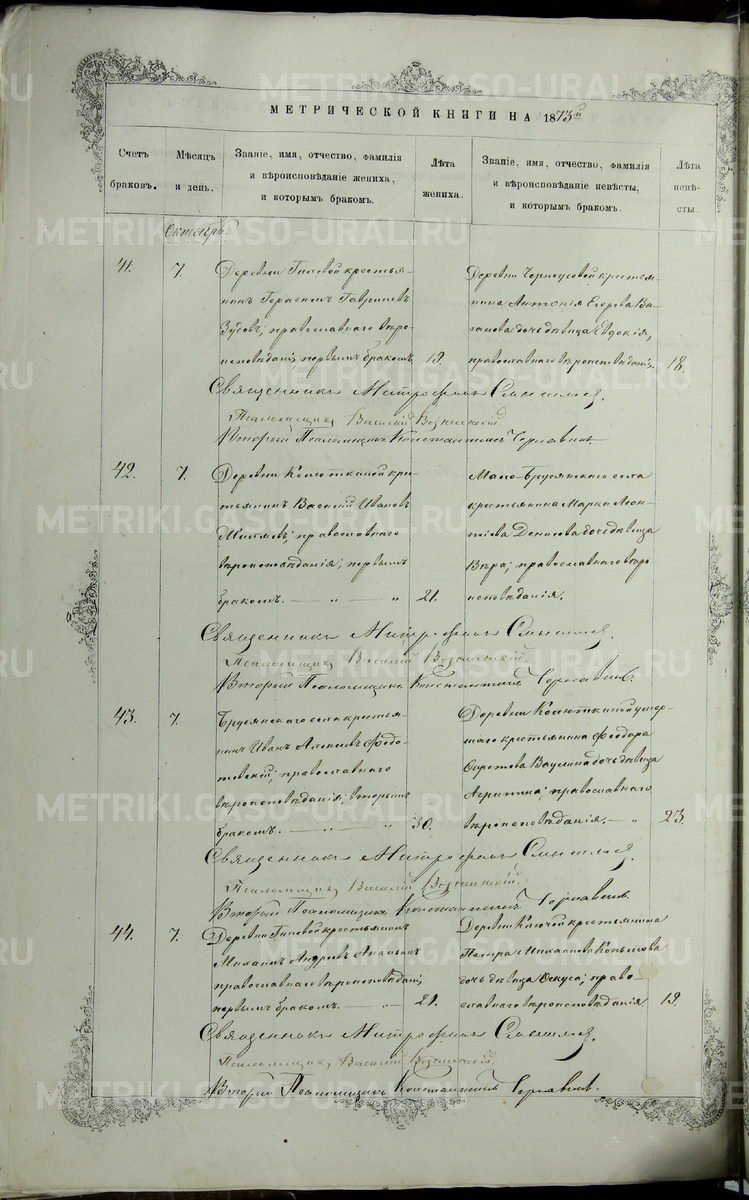 МЕТРИЧЕСКОЙ КНИГИ НА 1873й
Счетъ браковъ.
Мѣсяцъ и день.
Званіе, имя, отчество, фамилія и вѣроисповѣданіе жениха, и которымъ бракомъ.
Лѣта жениха.
Званіе, имя, отчество, фамилія и вѣроисповѣданіе невѣсты, и которымъ бракомъ.
Лѣта невѣсты.
Октябрь.
41. 7.
Деревни Гилевой крестья-
нинъ Герасимъ Гавриловъ
Зудовъ; православнаго вѣро-
исповѣданія, первымъ бракомъ. 19.
Деревни Черноусовой крестья-
нина Антонія Егорова Ва-
ганова дочь дѣвица Евдокія,
православнаго вѣроисповѣданія. 18.
Священникъ Митрофанъ
Псаломщикъ Василій
Второй Псаломщикъ Константинъ
42. 7.
Деревни кре-
стьянинъ Василій Ивановъ
православнаго
вѣроисповѣданія; первымъ
бракомъ. — „ — „ 21.
Мало-Брусянскаго села
крестьянина Марка Леон-
тіева Денисова дочь дѣвица
Вѣра; православнаго вѣро-
исповѣданія.
Священникъ Митрофанъ
Псаломщикъ Василій
Второй Псаломщикъ Константинъ
43. 7.
Брусянскаго села крестья-
нинъ Иванъ Алексѣевъ Федо-
товскій; православнаго
вѣроисповѣданія; вторымъ
бракомъ. — „ — „ 30.
Деревни умер-
шаго крестьянина Феодора
дочь дѣвица
Агрипина православнаго
вѣроисповѣданія. — „ 23.
Священникъ Митрофанъ
Псаломщикъ Василій
Второй Псаломщикъ Константинъ
44. 7.
Деревни Гилевой крестьянинъ
Михаилъ Андреевъ Ананьинъ
православнаго вѣроисповѣданія
первымъ бракомъ. — „ — 21.
Деревни Ключей крестьянина
Петра Михаилова Копылова
дочь дѣвица право-
славнаго вѣроисповѣданія 19.
Священникъ Митрофанъ
Псаломщикъ Василій
Второй Псаломщикъ Константинъ
METRIKI.GASO-URAL.RU